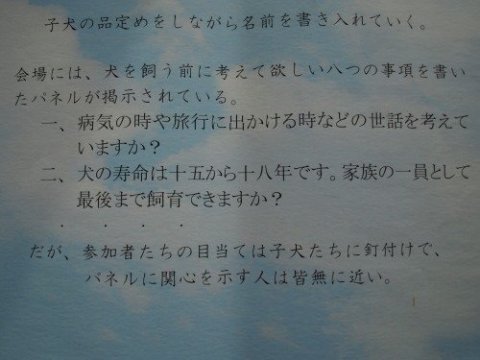 子犬の品定めをしながら名前を書き入れていく。
会場には、犬を飼う前に考えて欲しい八つの事項を書い
たパネルが掲示されている。
一、病気の時や旅行に出かける時などの世話を考えて
いますか？
二、犬の寿命は十五から十八年です。家族の一員として
最後まで飼育できますか？
・　・　・　・
だが、参加者たちの目当ては子犬たちに釘付けで、
パネルに関心を示す人は皆無に近い。